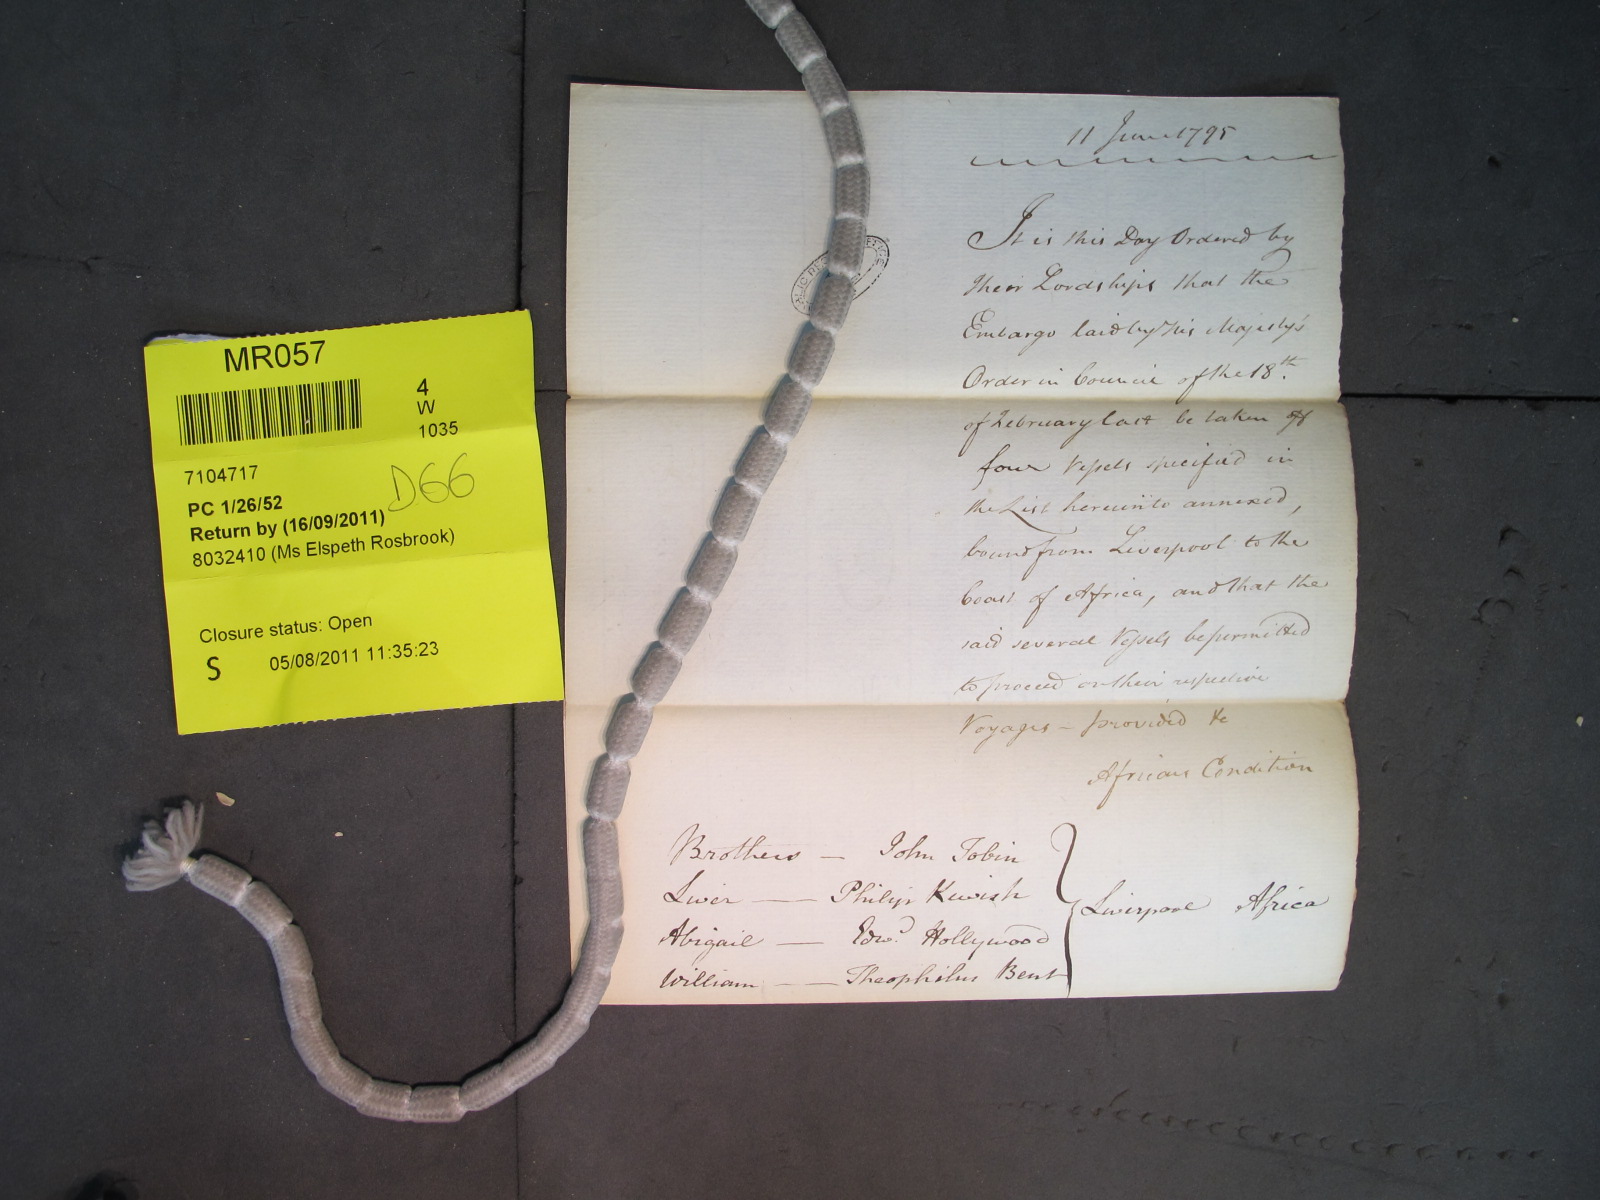 MR057
4
W
1035
7104717
D66
PC 1/26/52
Return by (16/09/2011)
8032410 (Ms Elspeth Rosbrook)
Closure status: Open
S 05/08/2011 11:35:23
11 June 1795
It is this Day Ordered by
their Lordships that the
Embargo laid by His Majesty's
Order in Council of the 18th.
of February last be taken off
four Vessels specified in
the List hereunto annexed,
bound from Liverpool to the
Coast of Africa, and that the
said several Vessels be permitted
to proceed on their respective
Voyages - provided &c
African Condition
Brothers — John Tobin
Liver — Philip Kewish
Abigail — Edwd. Hollywood
William — Theophilus Bent
Liverpool Africa